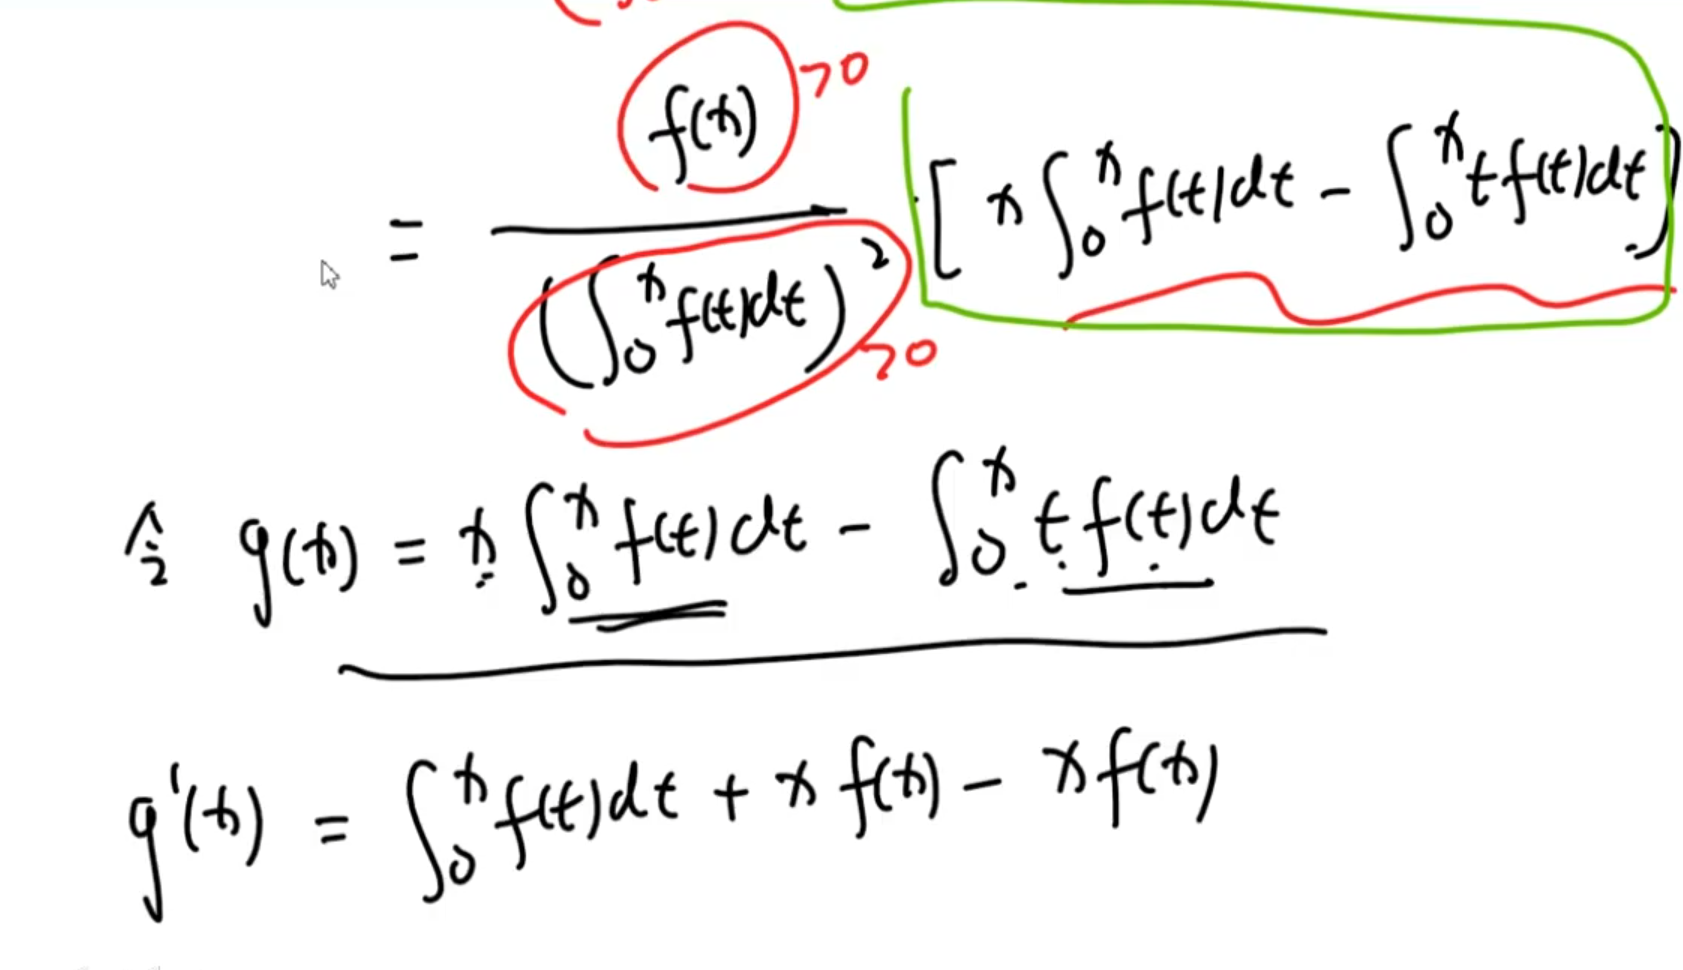 = f(x) / (∫₀ˣ f(t)dt)² · [ x ∫₀ˣ f(t)dt - ∫₀ˣ t f(t)dt ]
>0
>0
令 g(x) = x ∫₀ˣ f(t)dt - ∫₀ˣ t f(t)dt
g'(x) = ∫₀ˣ f(t)dt + x f(x) - x f(x)